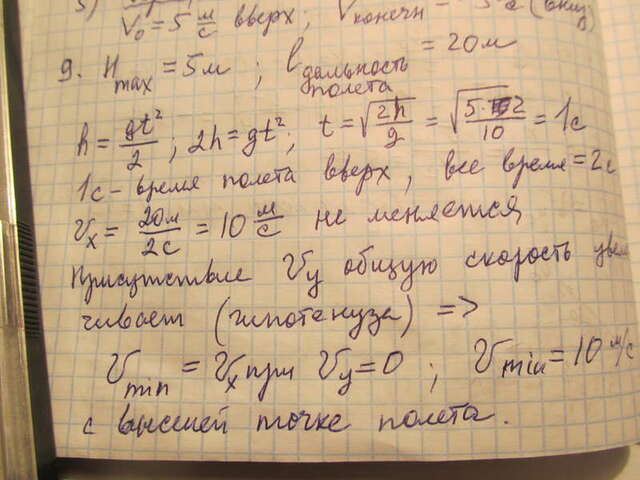 5)
V₀ = 5 м/с вверх; Vконечн = 5
9. Hmax = 5м; lдальность полета = 20м
h = gt²/2; 2h = gt²; t = √(2h/g) = √(5·2/10) = 1с
1с - время полета вверх, все время = 2с
Vx = 20м/2с = 10 м/с не меняется
Присутствие Vy общую скорость увели
чивает (гипотенуза) =>
Vmin = Vx при Vy = 0; Vmin = 10 м/с
в высшей точке полета.